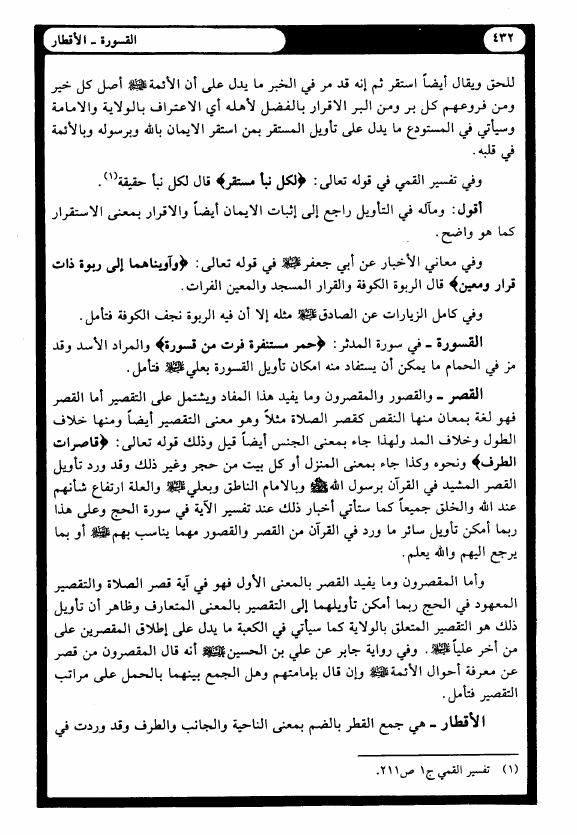 ٤٣٢
القسورة ـ الأقطار
للحق ويقال أيضاً استقر ثم إنه قد مر في الخبر ما يدل على أن الأئمة ﷺ أصل كل خير
ومن فروعهم كل بر ومن البر الاقرار بالفضل لأهله أي الاعتراف بالولاية والامامة
وسيأتي في المستودع ما يدل على تأويل المستقر بمن استقر الايمان بالله وبرسوله وبالأئمة
في قلبه.
وفي تفسير القمي في قوله تعالى: ﴿لكل نبأ مستقر﴾ قال لكل نبأ حقيقة(١).
أقول: ومآله في التأويل راجع إلى إثبات الايمان أيضاً والاقرار بمعنى الاستقرار
كما هو واضح.
وفي معاني الأخبار عن أبي جعفر ﷺ في قوله تعالى: ﴿وآويناهما إلى ربوة ذات
قرار ومعين﴾ قال الربوة الكوفة والقرار المسجد والمعين الفرات.
وفي كامل الزيارات عن الصادق ﷺ مثله إلا أن فيه الربوة نجف الكوفة فتأمل.
القسورة ـ في سورة المدثر: ﴿حمر مستنفرة فرت من قسورة﴾ والمراد الأسد وقد
مز في الحمام ما يمكن أن يستفاد منه امكان تأويل القسورة بعلي ﷺ فتأمل.
القصر ـ والقصور والمقصرون وما يفيد هذا المفاد ويشتمل على التقصير أما القصر
فهو لغة بمعان منها النقص كقصر الصلاة مثلاً وهو معنى التقصير أيضاً ومنها خلاف
الطول وخلاف المد ولهذا جاء بمعنى الجنس أيضاً قيل وذلك قوله تعالى: ﴿قاصرات
الطرف﴾ ونحوه وكذا جاء بمعنى المنزل أو كل بيت من حجر وغير ذلك وقد ورد تأويل
القصر المشيد في القرآن برسول الله ﷺ وبالامام الناطق وبعلي ﷺ والعلة ارتفاع شأنهم
عند الله والخلق جميعاً كما ستأتي أخبار ذلك عند تفسير الآية في سورة الحج وعلى هذا
ربما أمكن تأويل سائر ما ورد في القرآن من القصر والقصور مهما يناسب بهم ﷺ أو بما
يرجع اليهم والله يعلم.
وأما المقصرون وما يفيد القصر بالمعنى الأول فهو في آية قصر الصلاة والتقصير
المعهود في الحج ربما أمكن تأويلهما إلى التقصير بالمعنى المتعارف وظاهر أن تأويل
ذلك هو التقصير المتعلق بالولاية كما سيأتي في الكعبة ما يدل على إطلاق المقصرين على
من أخر علياً ﷺ. وفي رواية جابر عن علي بن الحسين ﷺ أنه قال المقصرون من قصر
عن معرفة أحوال الأئمة ﷺ وإن قال بإمامتهم وهل الجمع بينهما بالحمل على مراتب
التقصير فتأمل.
الأقطار ـ هي جمع القطر بالضم بمعنى الناحية والجانب والطرف وقد وردت في
(١) تفسير القمي ج١ ص٢١١.